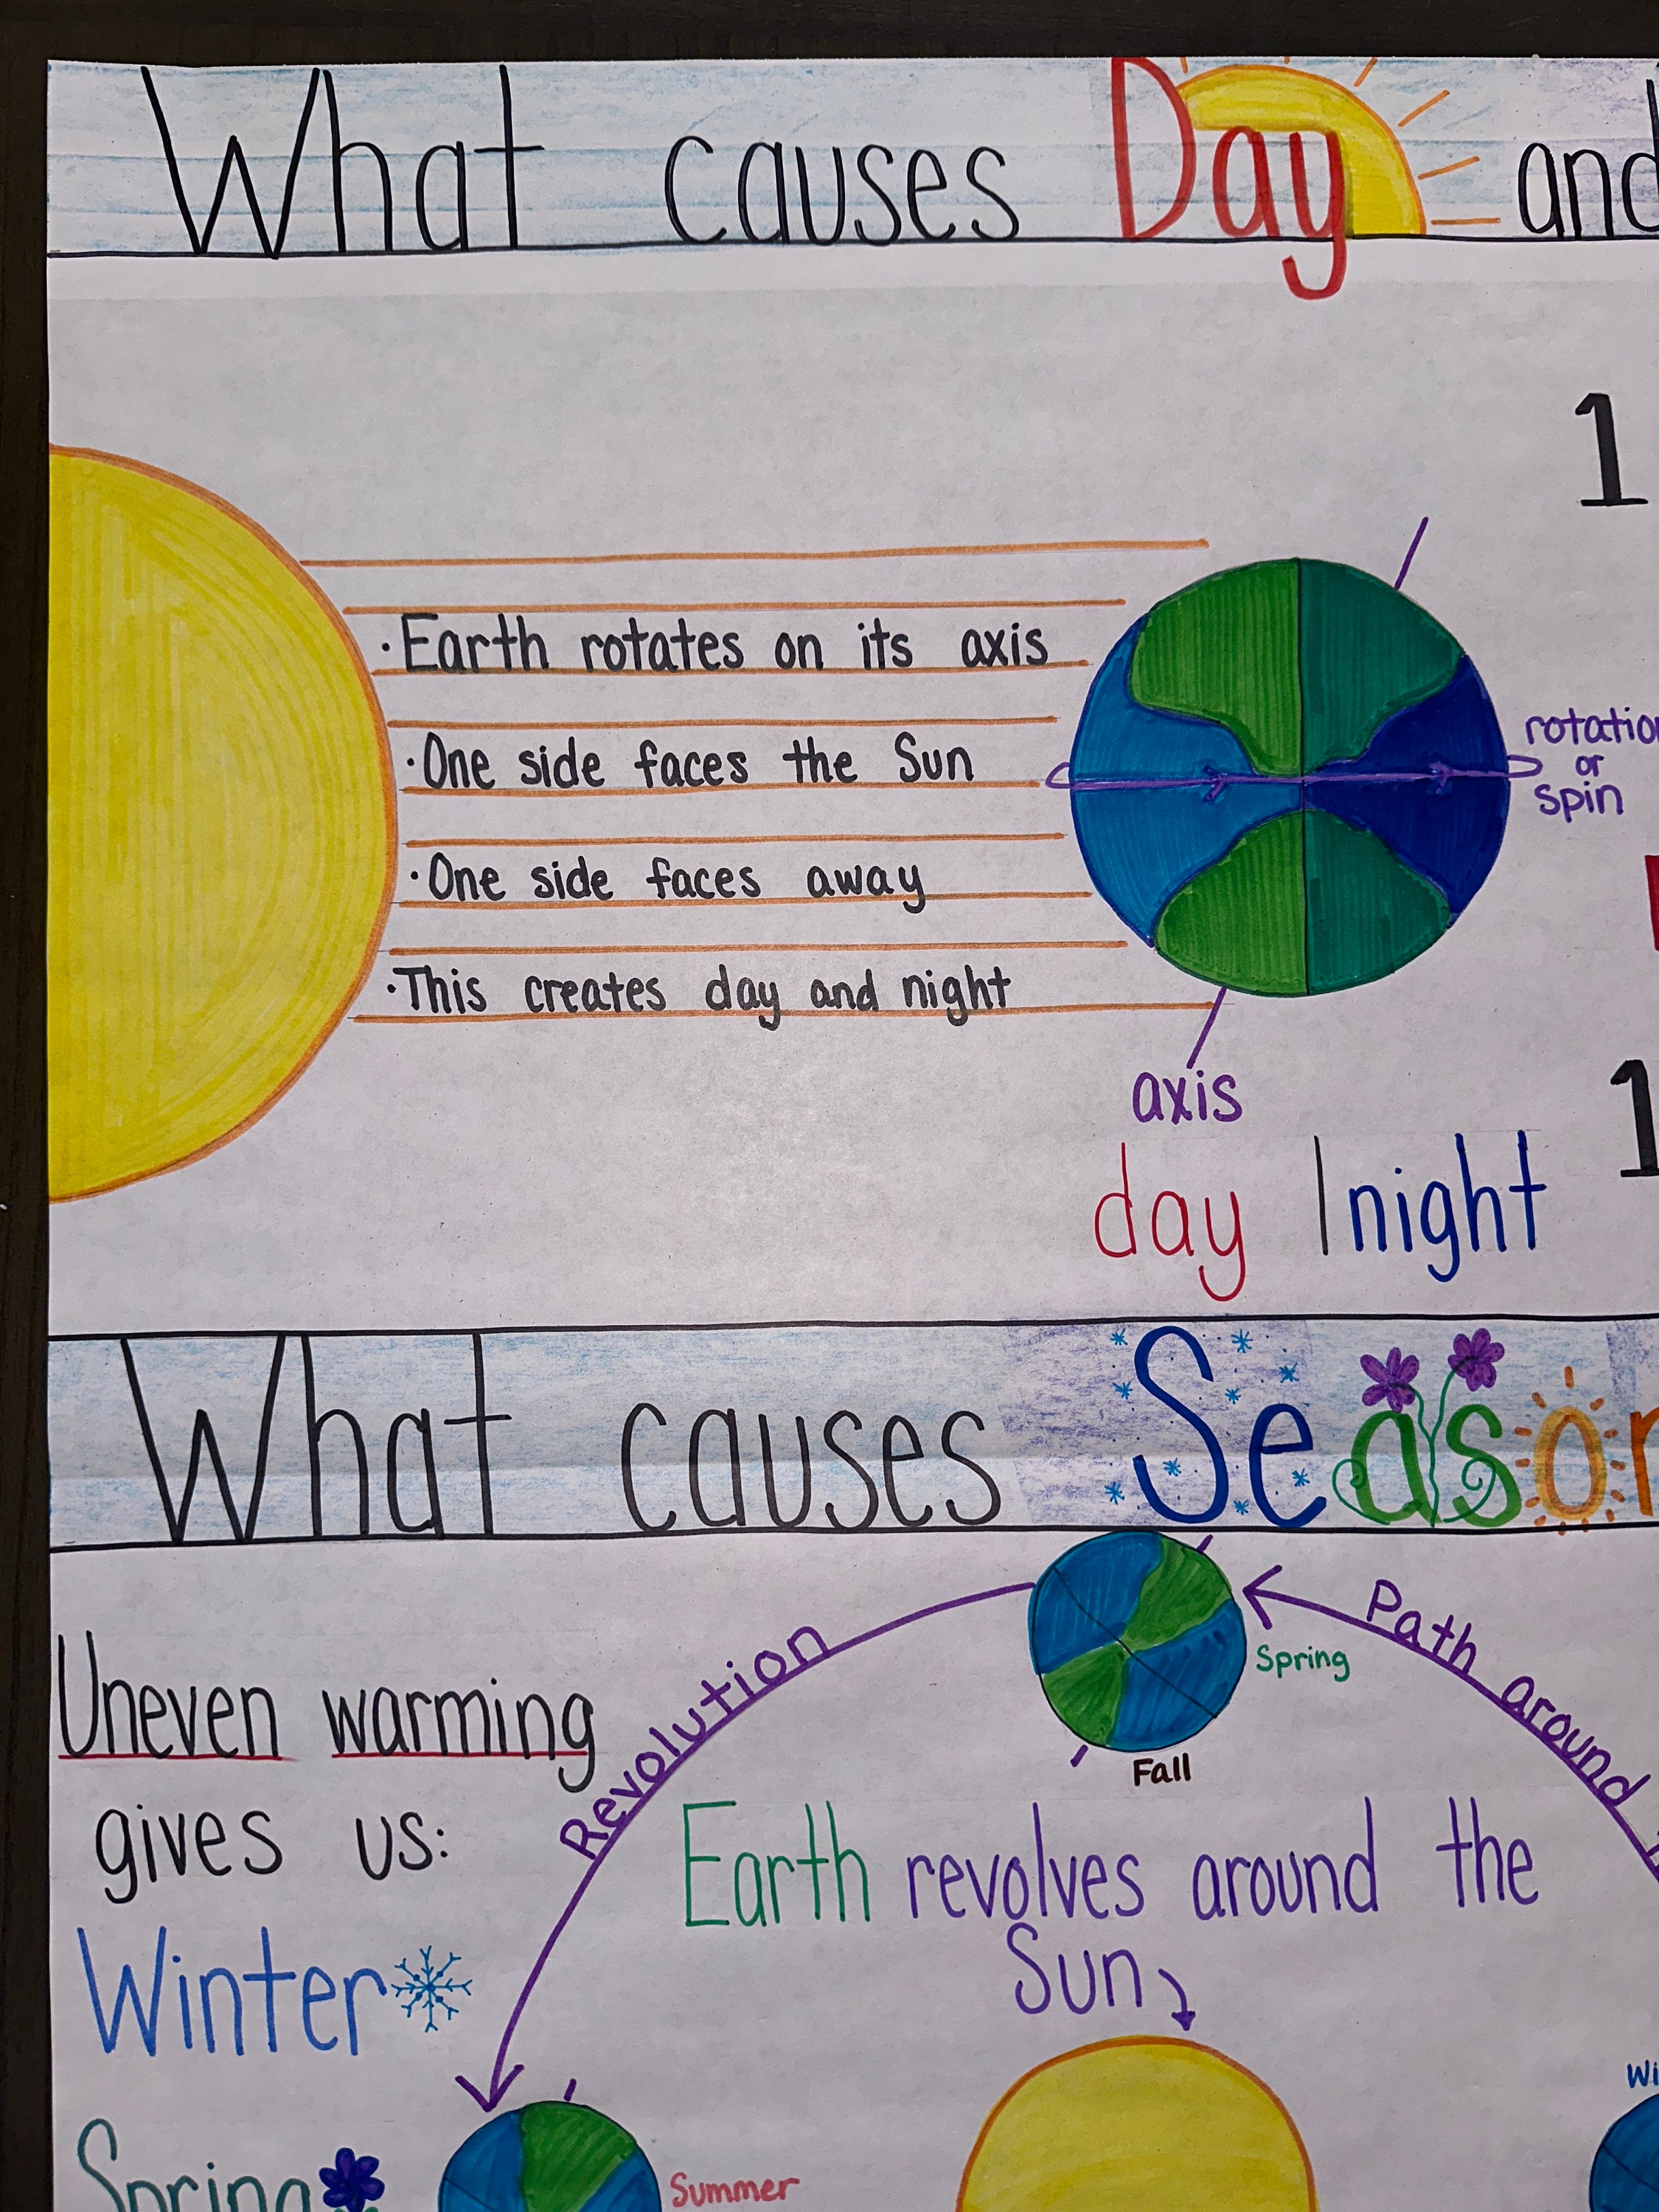 What causes Day and
1
·Earth rotates on its axis
·One side faces the Sun
·One side faces away
·This creates day and night
rotation
or
spin
axis
1
day | night
What causes Season
Uneven warming
gives us:
Winter
Spring
Revolution
Path around
Spring
Fall
Earth revolves around the
Sun
Summer
Wi